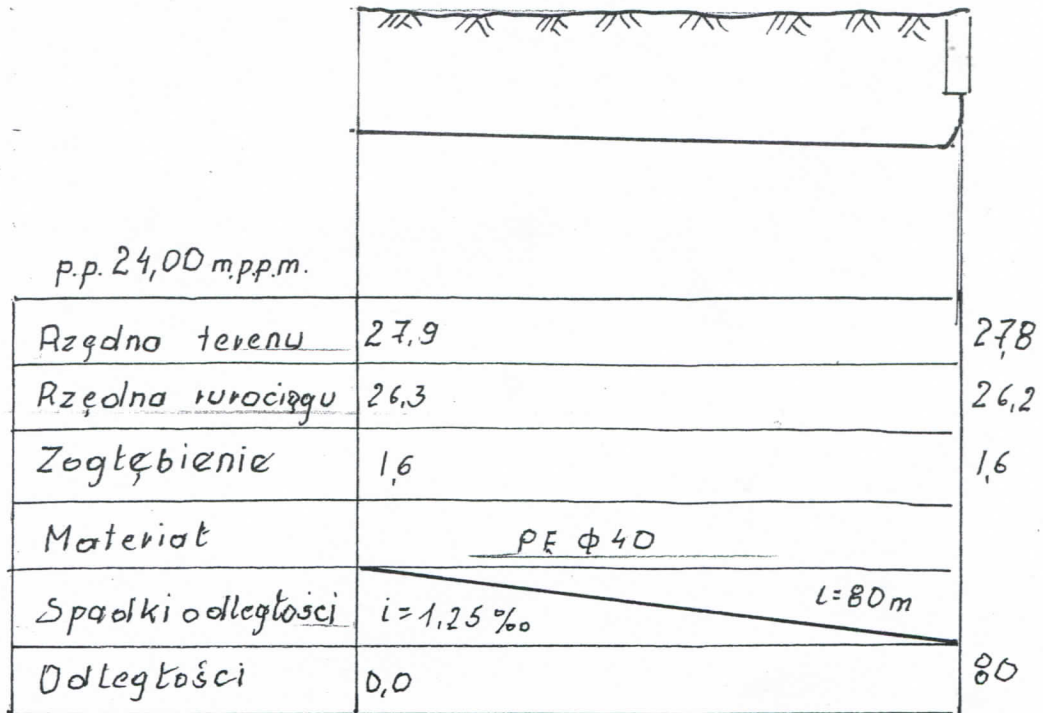 p.p. 24,00 m.p.p.m.
Rzędna terenu 27,9 27,8
Rzędna rurociągu 26,3 26,2
Zagłębienie 1,6 1,6
Materiał PE ϕ 40
Spadki odległości i=1,25 ‰ L=80m
Odległości 0,0 80